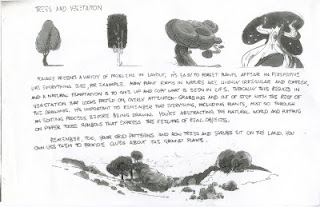 TREES AND VEGETATION
FOLIAGE PRESENTS A VARIETY OF PROBLEMS IN LAYOUT. IT'S EASY TO FORGET PLANTS APPEAR IN PERSPECTIVE
LIKE EVERYTHING ELSE, FOR EXAMPLE. MANY PLANT FORMS IN NATURE ARE HIGHLY IRREGULAR AND COMPLEX,
AND A NATURAL TEMPTATION IS TO TRY AND COPY WHAT IS SEEN IN LIFE. TYPICALLY THIS RESULTS IN
VEGETATION THAT LOOKS OVERLY ATTENTION-GRABBING AND OUT OF STEP WITH THE REST OF
THE DRAWING. IT'S IMPORTANT TO REMEMBER THAT EVERYTHING, INCLUDING PLANTS, MUST GO THROUGH
AN EDITING PROCESS BEFORE BEING DRAWN. YOU'RE ABSTRACTING THE NATURAL WORLD AND PUTTING
ON PAPER THOSE SYMBOLS THAT EXPRESS THE FEELING OF REAL OBJECTS.
REMEMBER, TOO, YOUR GRID PATTERNS AND HOW TREES AND SHRUBS SIT ON THE LAND. YOU
CAN USE THEM TO PROVIDE CLUES ABOUT THE GROUND PLANE.